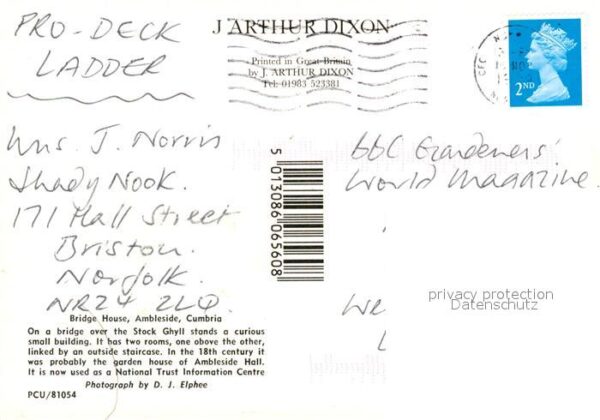 PRO-DECK
LADDER
J ARTHUR DIXON
Printed in Great Britain
by J. ARTHUR DIXON
Tel: 01983 523381
2ND
Mrs. J. Norris
Shady Nook.
171 Hall Street
Briston.
Norfolk.
NR24 2LQ.
BBC Gardeners'
World Magazine.
We
5 013086 065508
privacy protection
Datenschutz
Bridge House, Ambleside, Cumbria
On a bridge over the Stock Ghyll stands a curious
small building. It has two rooms, one obove the other,
linked by an outside staircase. In the 18th century it
was probably the garden house of Ambleside Hall.
It is now used as a National Trust Information Centre
Photograph by D. J. Elphee
PCU/81054